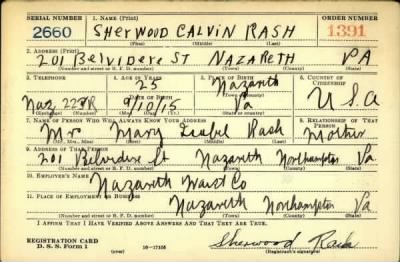 SERIAL NUMBER 1. NAME (Print) ORDER NUMBER
2660 SHERWOOD CALVIN RASH 1391
(First) (Middle) (Last)
2. ADDRESS (Print)
201 BELVIDERE ST NAZARETH PA
(Number and street or R. F. D. number) (Town) (County) (State)
3. TELEPHONE 4. AGE IN YEARS 5. PLACE OF BIRTH 6. COUNTRY OF CITIZENSHIP
25 Nazareth
DATE OF BIRTH (Town or county)
Naz 9/10/15 Pa U S A
(Exchange) (Number) (Mo.) (Day) (Yr.) (State or country)
7. NAME OF PERSON WHO WILL ALWAYS KNOW YOUR ADDRESS 8. RELATIONSHIP OF THAT PERSON
Mrs Mary Isabel Rash Mother
(Mr., Mrs., Miss) (First) (Middle) (Last)
9. ADDRESS OF THAT PERSON
201 Belvidere St Nazareth Northampton Pa
(Number and street or R. F. D. number) (Town) (County) (State)
10. EMPLOYER'S NAME
Nazareth Waist Co
11. PLACE OF EMPLOYMENT OR BUSINESS
Nazareth Northampton Pa
(Number and street or R. F. D. number) (Town) (County) (State)
I AFFIRM THAT I HAVE VERIFIED ABOVE ANSWERS AND THAT THEY ARE TRUE.
REGISTRATION CARD
D. S. S. Form 1 (over) 16-17105 Sherwood Rash
(Registrant's signature)